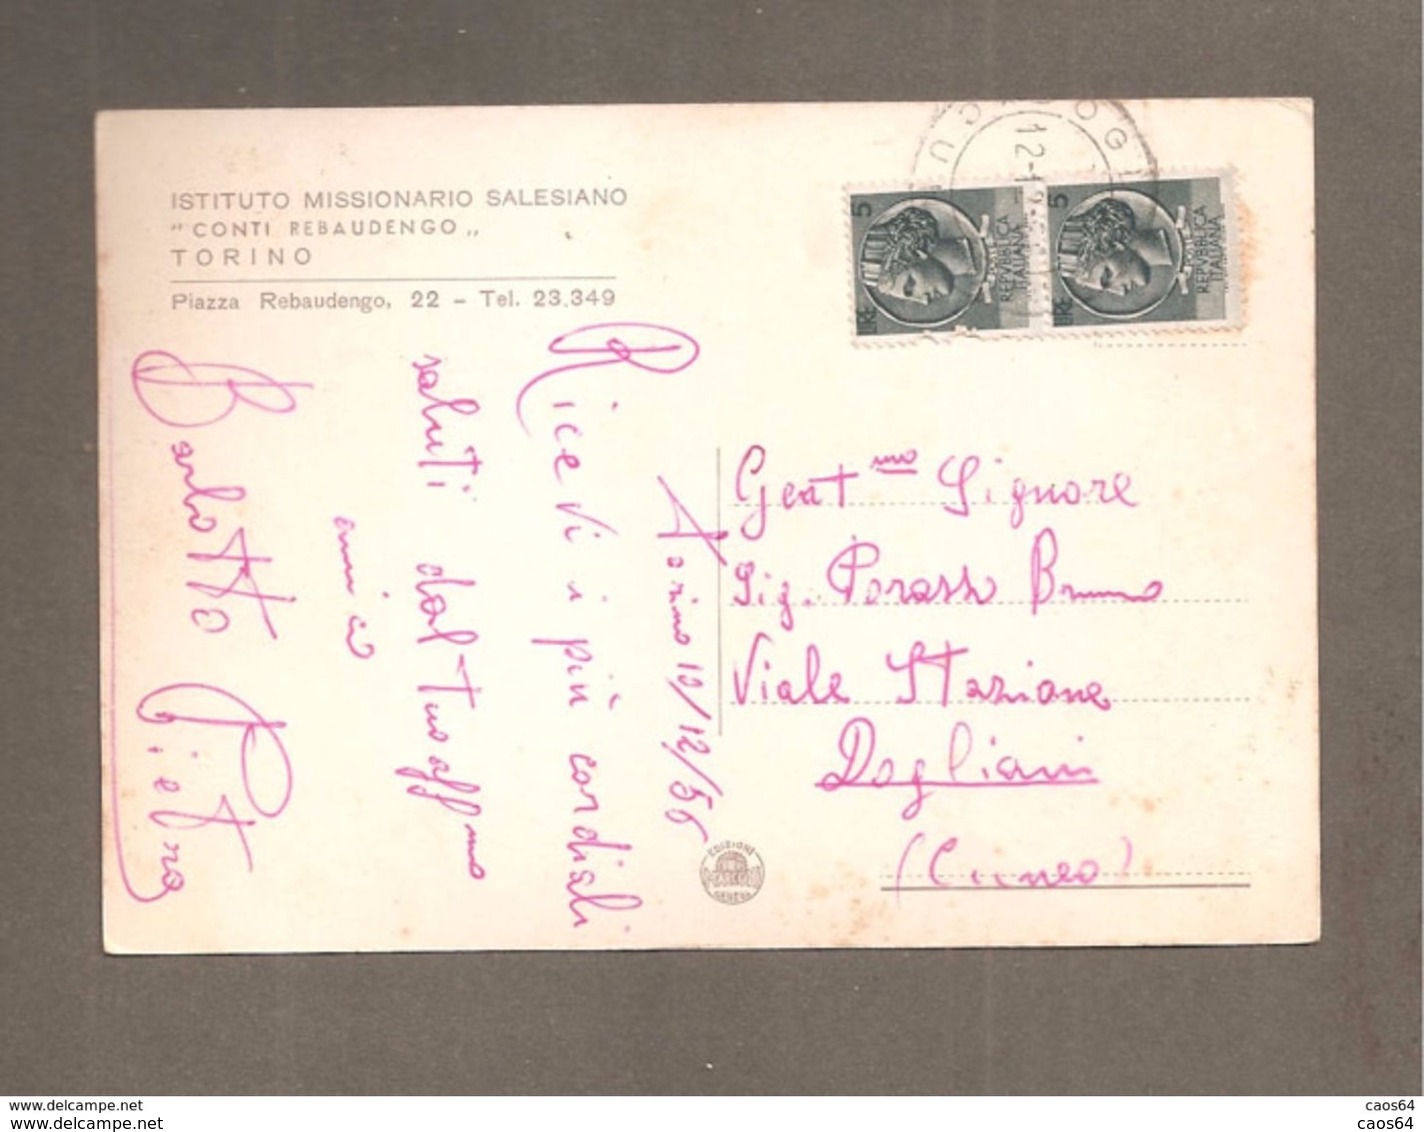 ISTITUTO MISSIONARIO SALESIANO
"CONTI REBAUDENGO„
TORINO
Piazza Rebaudengo, 22 - Tel. 23.349
Torino 10/12/55
Ricevi i più cordiali
saluti dal tuo affmo
amico
Barlotto Pietro
5 LIRE
POSTE
REPVBBLICA
ITALIANA
5 LIRE
POSTE
REPVBBLICA
ITALIANA
Gent mo Signore
Sig. Porassi Bruno
Viale Stazione
Dogliani
(Cuneo)
EDIZIONI
GENOVA
www.delcampe.net
www.delcampe.net
caos64
caos64